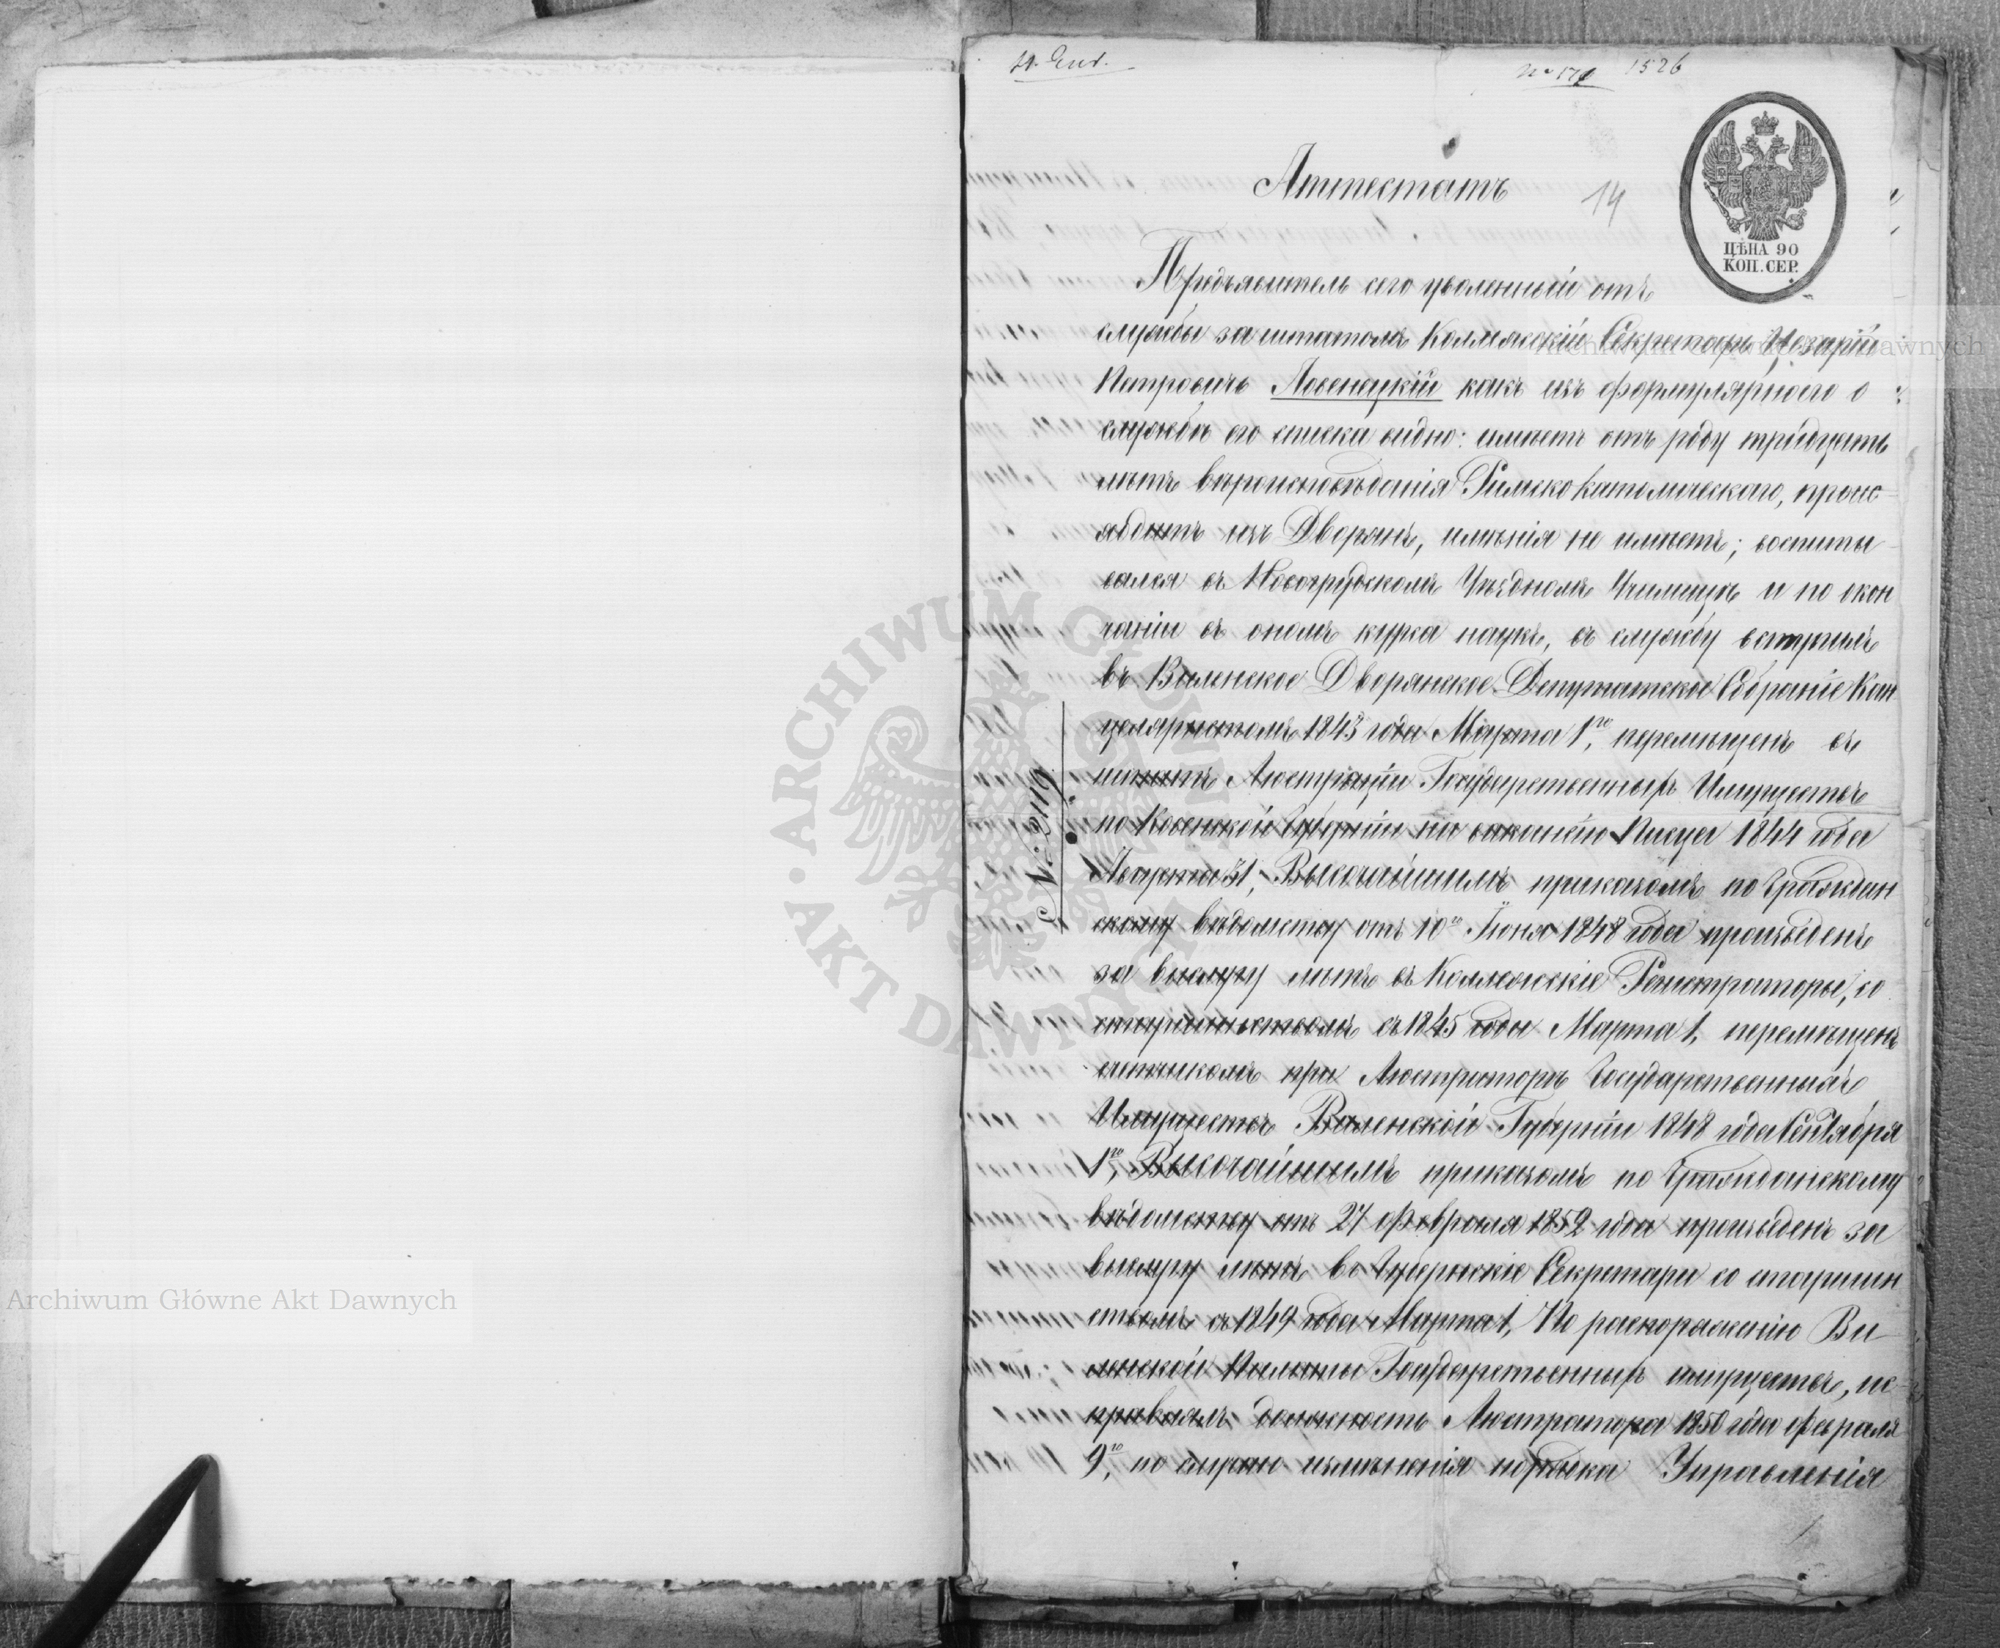 № 171 1526
Аттестатъ
14
ЦѢНА 90
КОП. СЕР.
Предъявитель сего уволенный отъ
службы за штатомъ Коллежскій Секретарь Цезарій
Петровичъ Лавенецкій какъ изъ формулярнаго о
службѣ его списка видно: имѣетъ отъ роду тридцать
лѣтъ вѣроисповѣданія Римско католическаго, проис-
ходитъ изъ Дворянъ, имѣнія не имѣетъ; воспиты
вался въ Новогрудскомъ Уѣздномъ Училищѣ и по окон
чаніи въ ономъ курса наукъ, въ службу вступилъ
въ Виленское Дворянское Депутатское Собраніе Кан
целяристомъ 1843 года Марта 1го, перемѣщенъ въ
штатъ Люстраціи Государственныхъ Имуществъ
по Ковенской Губерніи на вакансію Писца 1844 года
Марта 31, Высочайшимъ приказомъ по Граждан
скому вѣдомству отъ 10го Іюня 1848 года произведенъ
за выслугу лѣтъ въ Коллежскіе Регистраторы, со
старшинствомъ съ 1845 года Марта 1, перемѣщенъ
при Люстраторѣ Государственныхъ
Имуществъ Виленской Губерніи 1848 года Сентября
1го, Высочайшимъ приказомъ по Гражданскому
вѣдомству отъ 27 Февраля 1852 года произведенъ за
выслугу лѣтъ въ Губернскіе Секретари со старшин
ствомъ съ 1849 года Марта 1, По распоряженію Ви-
ленской Палаты Государственныхъ имуществъ, ис-
правлялъ должность Люстратора 1850 года Февраля
9го, по случаю измѣненія порядка Управленія
№ 2119
ARCHIWUM GŁÓWNE AKT DAWNYCH
Archiwum Główne Akt Dawnych
Archiwum Główne Akt Dawnych